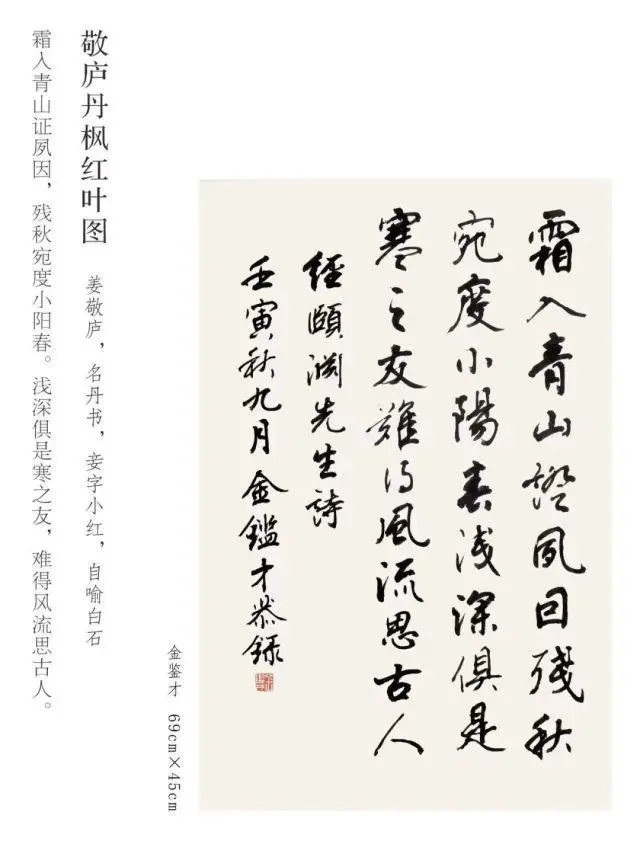 霜入青山證夙因殘秋
宛度小陽春淺深俱是
寒之友難得風流思古人
經頤淵先生詩
壬寅秋九月金鑑才恭録
金鉴才 69cm×45cm
敬庐丹枫红叶图 姜敬庐，名丹书，妾字小红，自喻白石
霜入青山证夙因，残秋宛度小阳春。浅深俱是寒之友，难得风流思古人。